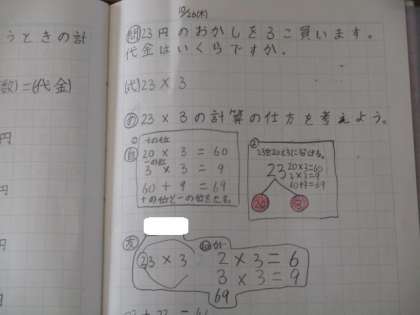 うときの計
数)=(代金)
円
円
円
10/26(木)
問 23円のおかしを3こ買います。
代金はいくらですか。
(式)23×3
め 23×3の計算の仕方を考えよう。
自
十の位
20×3=60
一の位
3×3=9
60+9=69
十の位と一の位をたす。
23を20と3に分ける。
23
20×3=60
3×3=9
60+9=69
20
3
友
23×3
2×3=6
3×3=9
69